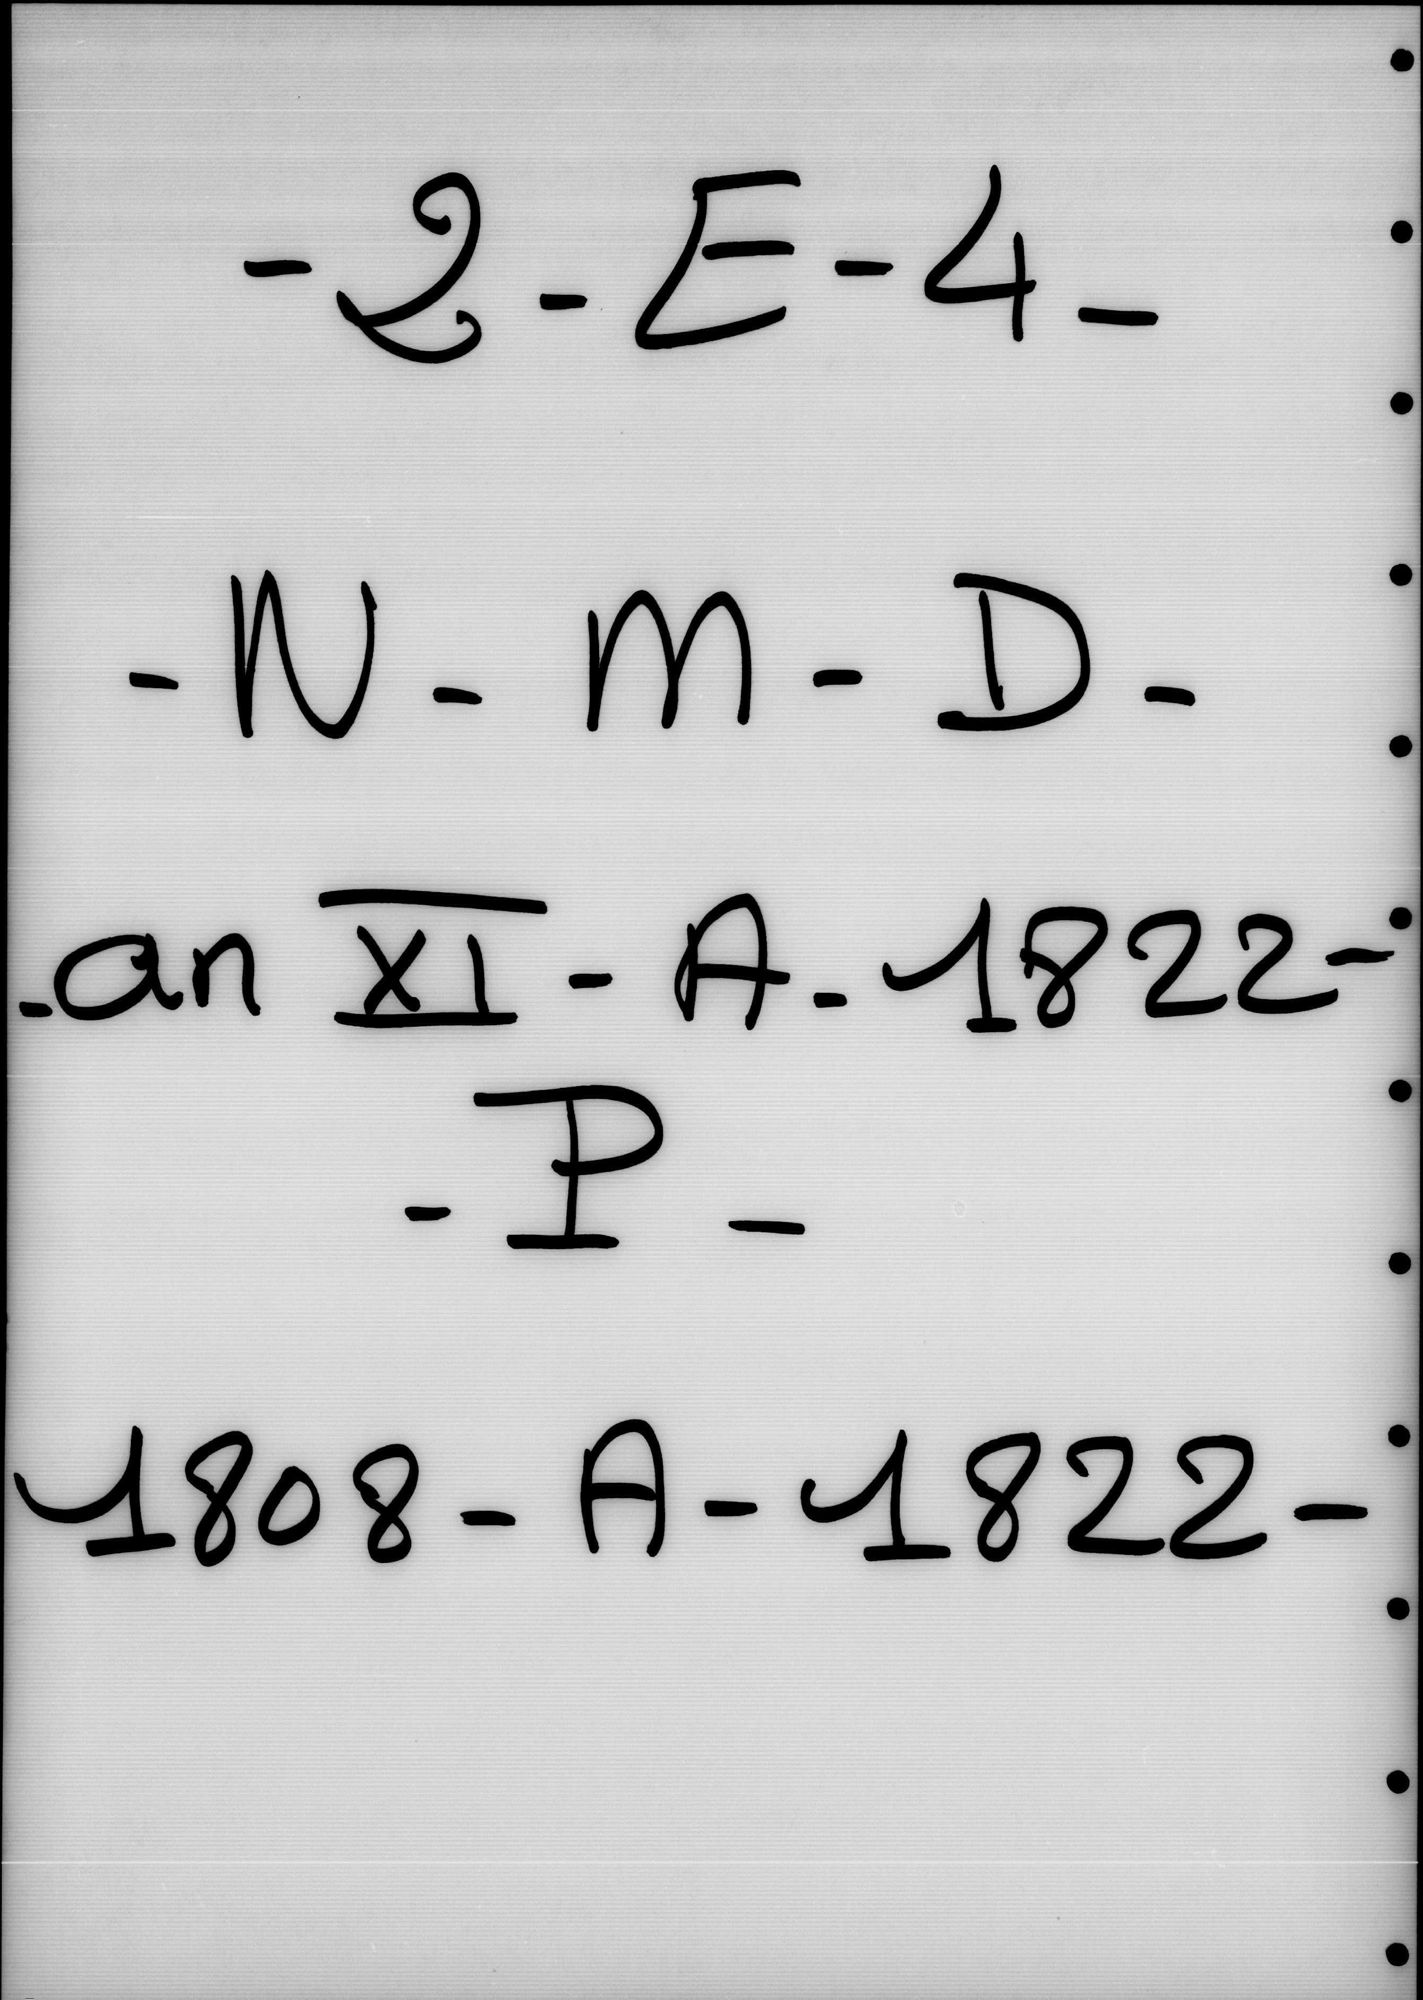 - 2 - E - 4 -
- N - M - D -
- an XI - A - 1822 -
- P -
1808 - A - 1822 -